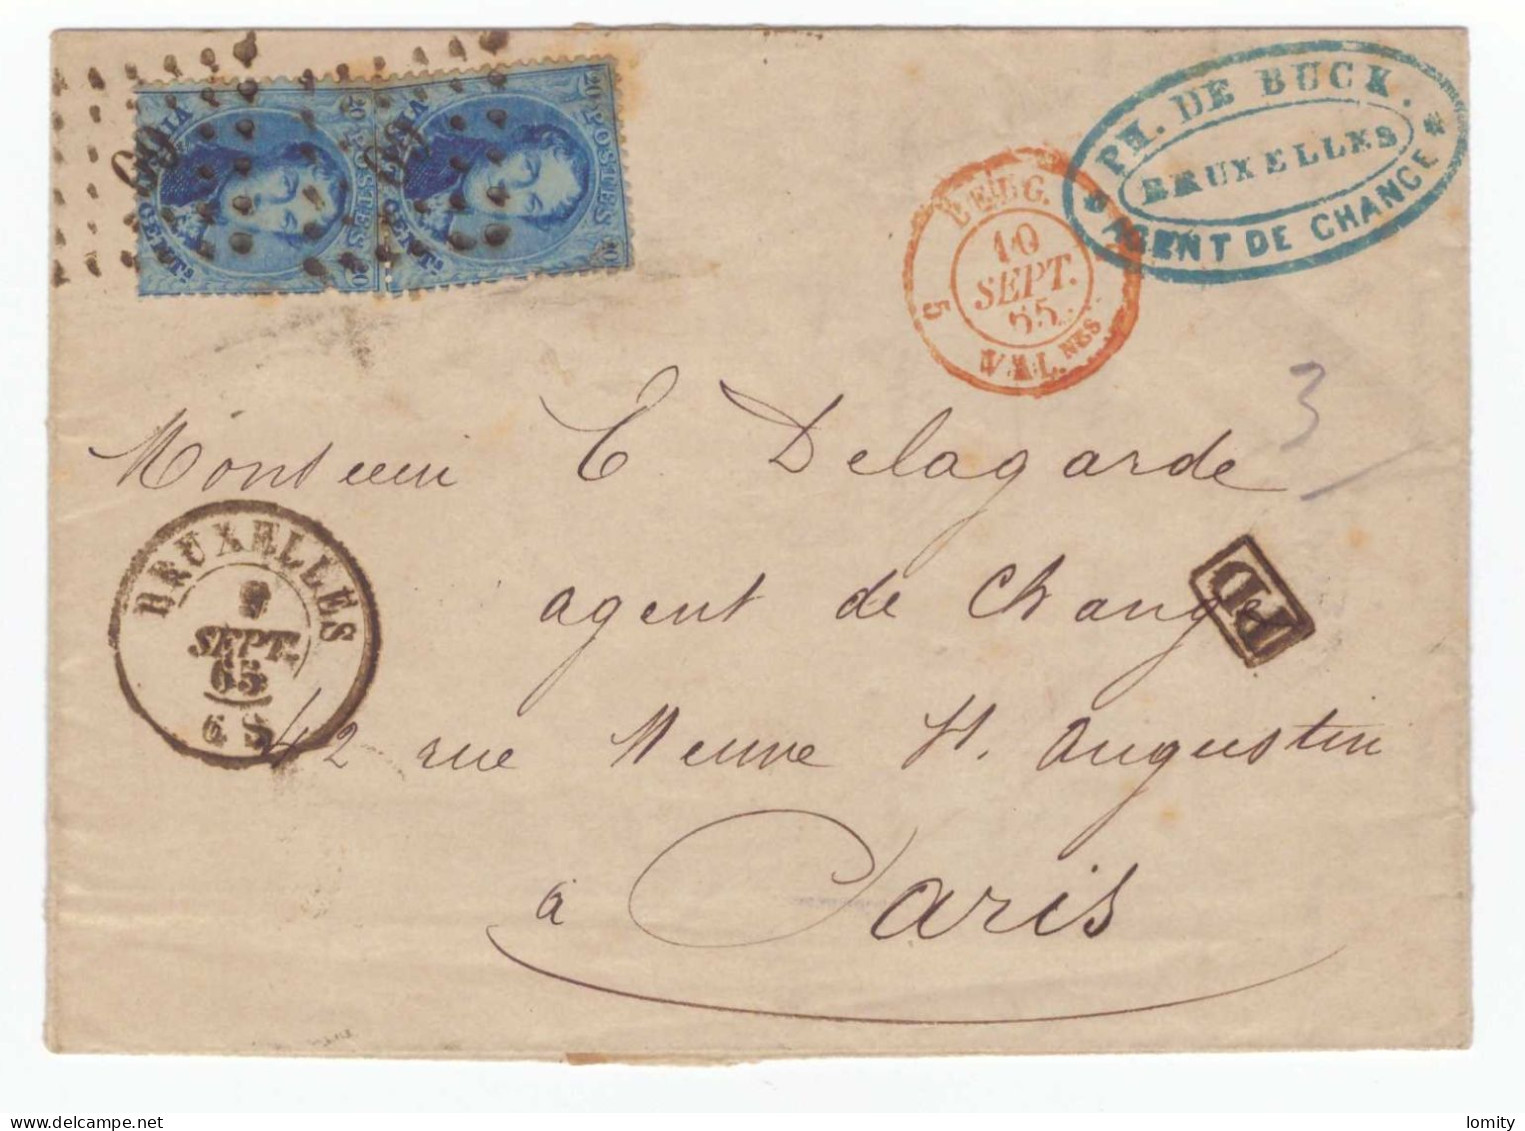 20 POSTES 20
CENTS
20 POSTES 20
CENTS
60
PH. DE BUCK.
BRUXELLES
* AGENT DE CHANGE *
BELG.
10
SEPT.
65
VAL.NES
5
3
Monsieur C Delagarde
agent de Change
PD
42 rue Neuve St. Augustin
à Paris
BRUXELLES
9
SEPT.
65
6 S
delcampe.net
lomity